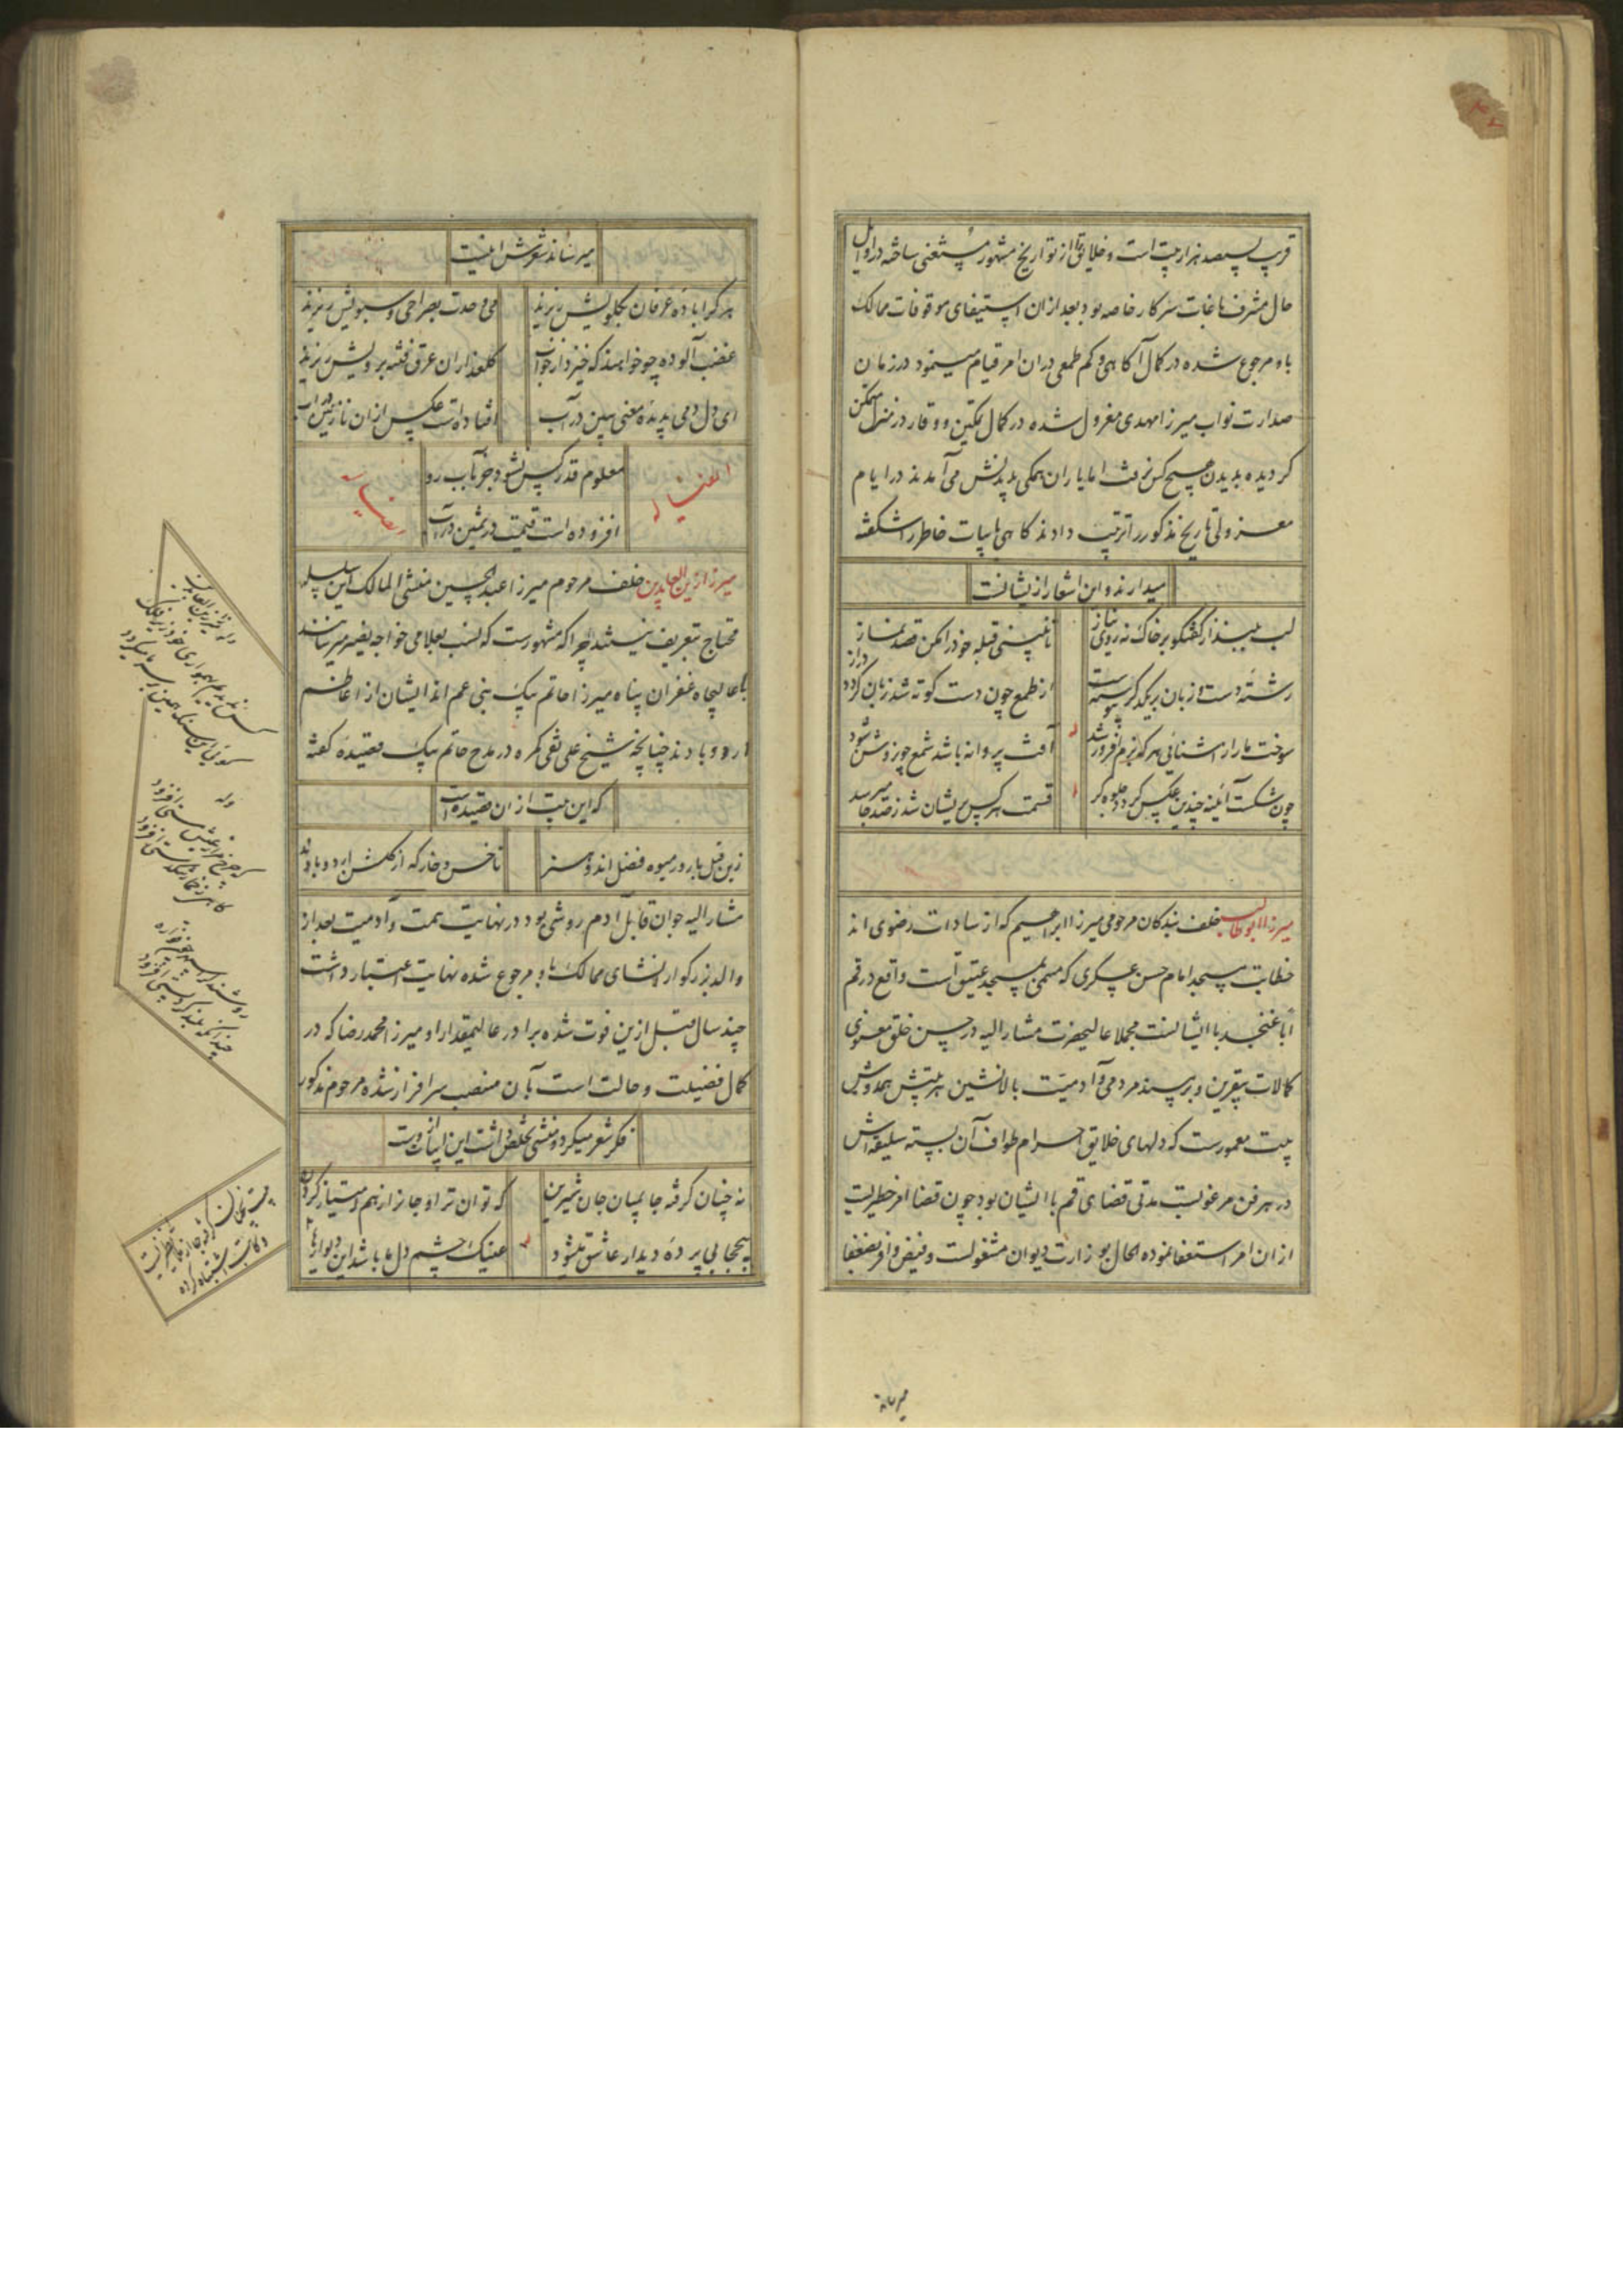 قریب بسیصد هزار بیت است و خلایق را از تواریخ مشهور مستغنی ساخته در اوایل
حال مشرف باغات سرکار خاصه بود بعد از ان استیفای موقوفات ممالک
باو مرجوع شده در کمال آگاهی و کم طمعی در ان امر قیام مینمود در زمان
صدارت نواب میرزا مهدی معزول شده در کمال تمکین و وقار در منزل متمکن
گردیده بدیدن هیچ کس نرفت اما یاران همگی بدیدنش می آمدند در ایام
معزولی تاریخ مذکور را ترتیب دادند گاهی بابیات خاطر را شکفته
میدارند و این اشعار ازیشانست
لب ببند از گفتگو بر خاک نه روی نیاز
تا نبینی قبله خود را مکن قصد نماز
رشته دست و زبان بر یکدگر پیوسته است
از طمع چون دست کوته شد زبان گردد دراز
سوخت ما را ز آشنائی هر که بزم افروز شد
آفت پروانه باشد شمع چون روشن شود
چون شکست آئینه چندین عکس گردد جلوه گر
قسمت هر کس پریشان شد ز صد جا میرسد
میرزا ابوطالب خلف بندگان مرحومی میرزا ابراهیم که از سادات رضوی اند
خطابت مسجد امام حسن عسکری که مسمی بمسجد عتیق است واقع در قم
اباً عن جد با ایشانست مجملا عالیحضرت مشار الیه در حسن خلق معنوی
کمالات بیقرین و بر مسند مردمی و آدمیت بالانشین هر بیتش همدوش
بیت معمورست که دلهای خلایق احرام طواف آن بسته سلیقه اش
در هر فن مرغوبست مدتی قضای قم با ایشان بود چون قضا امر خطریست
از ان امر استعفا نموده الحال بوزارت دیوان مشغولست و فیض وافر بضعفا
میرساند
میرساند شعرش اینست
هر که را باده عرفان بگلویش ریزند
می وحدت بصراحی و سبویش ریزند
غضب آلوده چو خواهند که خیزد از خواب
گلعذاران عرق فتنه برویش ریزند
ای دل دمی بدیده معنی ببین در آب
افتاده است عکس از ان نازنین در آب
ایضاً له
معلوم قدر کس نشود جز بآب رو
افزوده است قیمت در ثمین در آب
رضیا
میرزا زین العابدین خلف مرحوم میرزا عبد الحسین منشی الممالک این سلسله
محتاج بتعریف نیستند چرا که مشهورست که نسب بعلامی خواجه نصیر میرسانند
با عالیجاه غفران پناه میرزا حاتم بیک بنی عم اند ایشان از اعاظم
اردوباد ند چنانچه شیخ علی نقی کمره در مدح حاتم بیک قصیده گفته
که این بیت از ان قصیده است
زین قبل بارور میوه فضل اند و هنر
تا خس و خار که از گلشن اردوبادند
مشار الیه جوان قابل آدم روشی بود در نهایت همت و آدمیت بعد از
والد بزرگوار انشای ممالک باو مرجوع شده نهایت اعتبار داشت
چند سال قبل ازین فوت شده برادر عالیمقدار او میرزا محمد رضا که در
کمال فضیلت و حالت است بآن منصب سرافراز شده مرحوم مذکور
فکر شعر میکرد و منشی تخلص داشت این ابیات ازوست
نه چنان گرفته جا بمیان جان شیرین
که توان ترا و جانرا ز هم امتیاز کردن
بیحجابی پرده دیدار عاشق میشود
عینک چشم دل ما باشد این دیوارها
وله